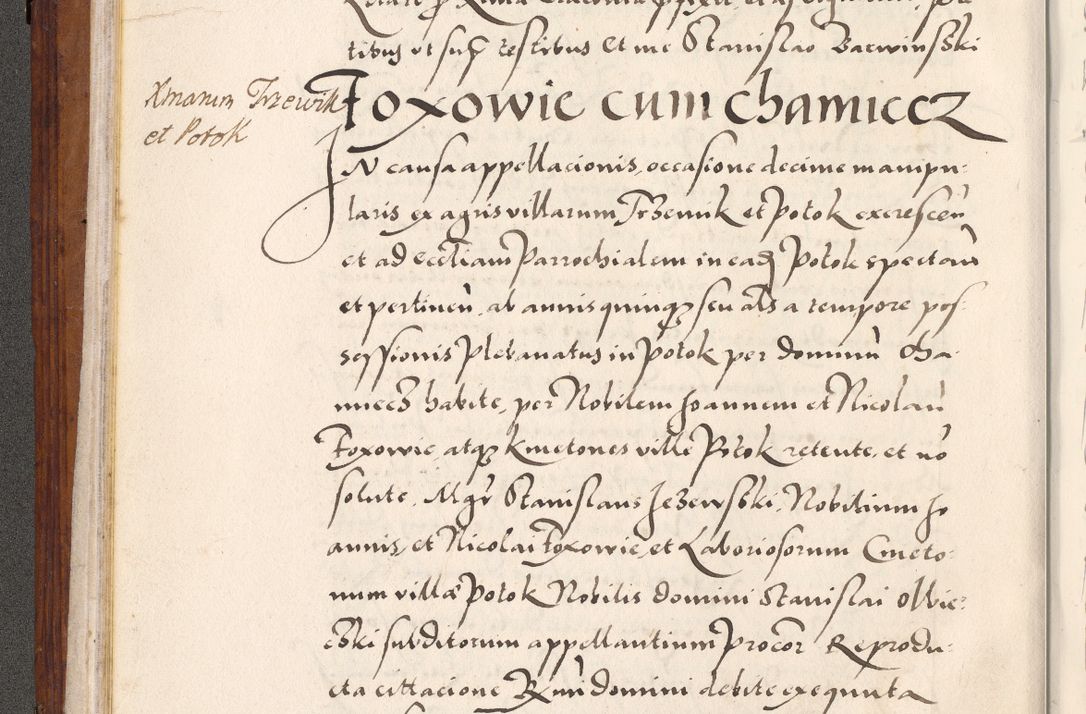 tibus ut supra testibus et me Stanislao Barwinski
Xmarum Trzewik
et Potok
Foxowie cum chamiecz
In causa appellacionis, occasione decime manipu-
laris ex agris villarum Trzewik et Potok excrescen
et ad eccliam Parrochialem in eadem Potok spectan
et pertinen, ab annis quinque seu als a tempore pos-
sessionis Plebanatus in Potok per dominu Cha-
miecz habite, per Nobilem Joannem et Nicolau
Foxowie, atque kmetones ville Potok retente, et no
solute, Mgr Stanislaus Jezewski, Nobilium Jo
annis, et Nicolai Foxowie, et Laboriosorum Cmeto-
num villae Potok Nobilis domini Stanislai Olbie-
czki subditorum appellantium Procor Reprodu-
cta cittacione Rmi domini debite exequuta